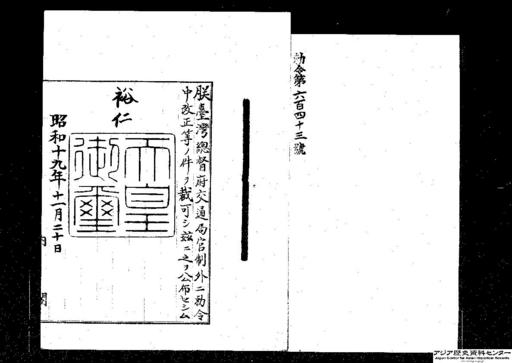 勅令第六百四十三號
朕臺灣總督府交通局官制外二勅令
中改正等ノ件ヲ裁可シ茲ニ之ヲ公布セシム
裕仁
天皇御璽
昭和十九年十一月二十日
内閣
アジア歴史資料センター
Japan Center for Asian Historical Records